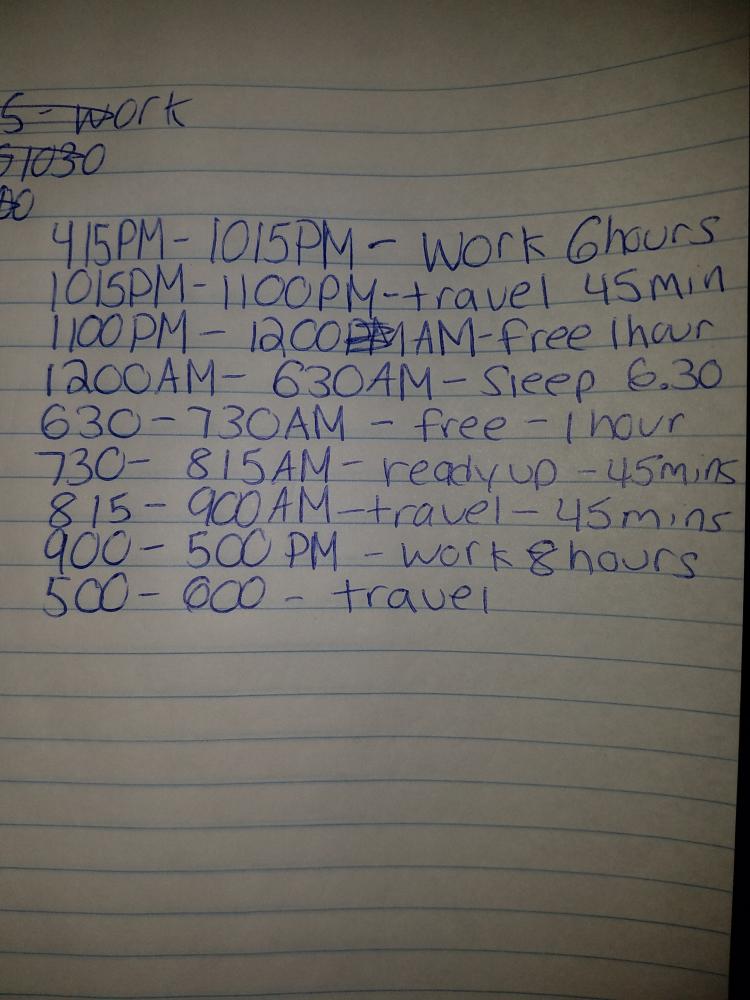 5 - work
51030
00
415PM - 1015PM - Work 6hours
1015PM - 1100PM - travel 45min
1100PM - 1200 AM - free 1hour
1200AM - 630AM - Sleep 6.30
630 - 730AM - free - 1 hour
730 - 815AM - ready up - 45mins
815 - 900AM - travel - 45mins
900 - 500 PM - work 8 hours
500 - 600 - travel